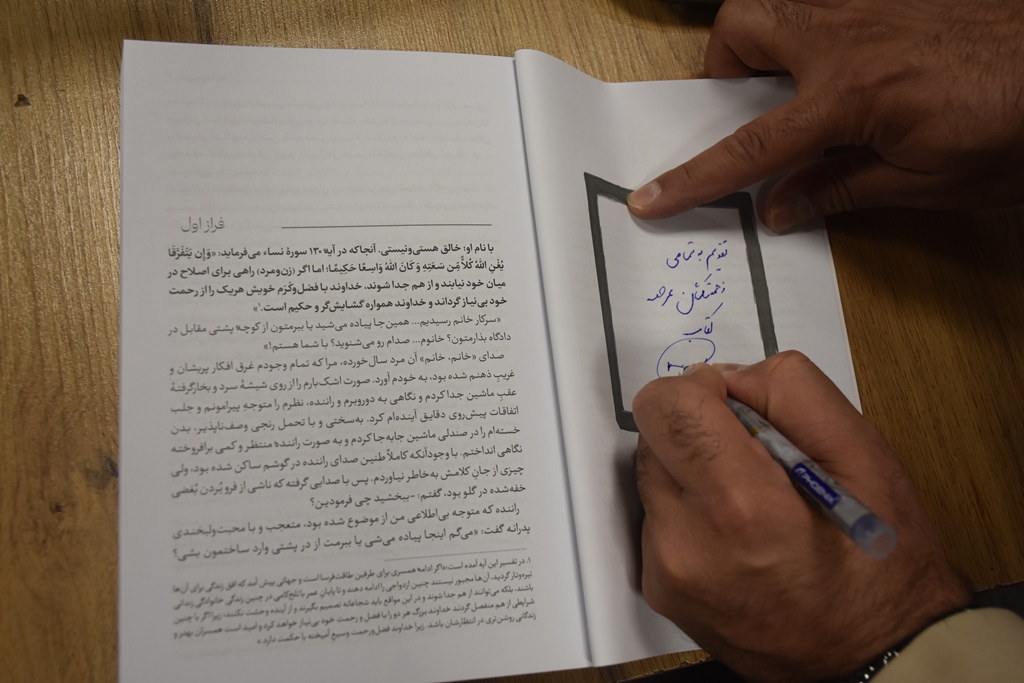 فراز اول
با نام او: خالق هستی‌ونیستی. آنجا که در آیهٔ ۱۳۰ سورهٔ نساء می‌فرماید: «وَإِن یَتَفَرَّقَا
یُغْنِ اللهُ کُلّاً مِّن سَعَتِهِ وَ کَانَ اللهُ وَاسِعًا حَکِیمًا؛ اما اگر (زن‌ومرد) راهی برای اصلاح در
میان خود نیابند و از هم جدا شوند، خداوند با فضل‌وکَرَم خویش هریک را از رحمت
خود بی‌نیاز گرداند و خداوند همواره گشایش‌گر و حکیم است.۱»
«سرکار خانم رسیدیم... همین‌جا پیاده می‌شید یا ببرمتون از کوچه پشتی مقابل در
دادگاه بذارمتون؟ خانوم... صدام رو می‌شنوید؟ با شما هستم!»
صدای «خانم، خانم» آن مرد سال‌خورده، مرا که تمام وجودم غرق افکار پریشان و
غریبِ ذهنم شده بود، به خودم آورد. صورت اشک‌بارم را از روی شیشهٔ سرد و بخارگرفتهٔ
عقبِ ماشین جدا کردم و نگاهی به دوروبرم و راننده، نظرم را متوجهِ پیرامونم و جلب
اتفاقات پیش‌روی دقایق آینده‌ام کرد. به‌سختی و با تحمل رنجی وصف‌ناپذیر، بدن
خسته‌ام را در صندلی ماشین جابه‌جا کردم و به صورت رانندهٔ منتظر و کمی برافروخته
نگاهی انداختم. با وجودآنکه کاملاً طنین صدای راننده در گوشم ساکن شده بود، ولی
چیزی از جانِ کلامش به‌خاطر نیاوردم. پس با صدایی گرفته که ناشی از فرو بُردن بُغضی
خفه‌شده در گلو بود، گفتم: -ببخشید چی فرمودین؟
راننده که متوجه بی‌اطلاعی من از موضوع شده بود، متعجب و با محبت‌ولبخندی
پدرانه گفت: «می‌گم اینجا پیاده می‌شی یا ببرمت از در پشتی وارد ساختمون بشی؟
۱. در تفسیر این آیه آمده است:«اگر ادامه همسری برای طرفین طاقت‌فرسا است و جهاتی پیش آمد که افق زندگی برای آن‌ها
تیره‌وتار گردید، آن‌ها مجبور نیستند چنین ازدواجی را ادامه دهند و تا پایان عمر با تلخ‌کامی در چنین زندگی خانوادگی زندانی
باشند، بلکه می‌توانند از هم جدا شوند و در این مواقع باید شجاعانه تصمیم بگیرند و از آینده وحشت نکنند؛ زیرا اگر با چنین
شرایطی از هم منفصل گردند خداوند بزرگ هر دو را با فضل و رحمت خود بی‌نیاز خواهد کرد و امید است همسران بهتر و
زندگانی روشن‌تری در انتظارشان باشد. زیرا خداوند فضل‌ورحمت وسیع آمیخته با حکمت دارد.»
تقدیم به تمامی
زحمتکشان عرصه
کتاب